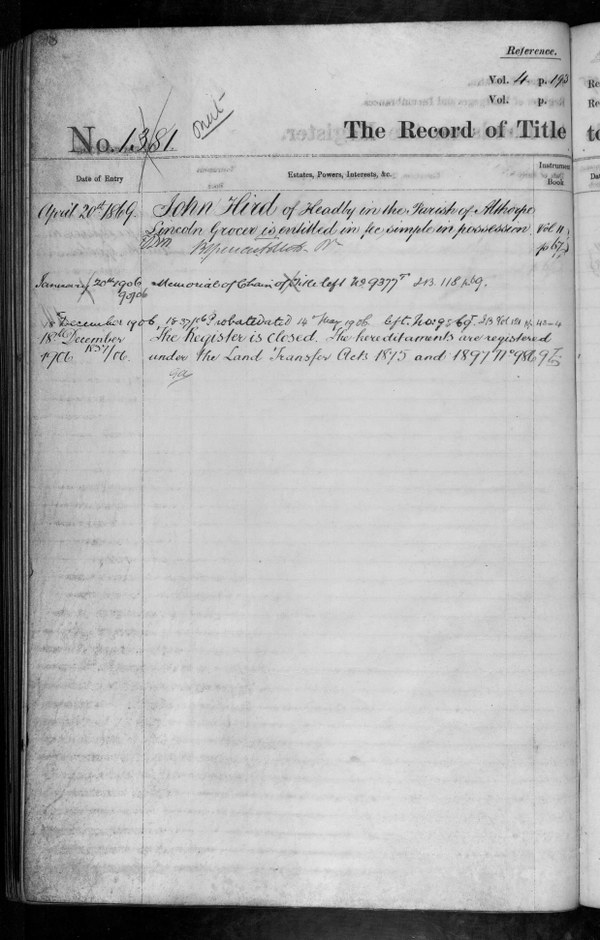 Reference.
Vol. 4 p. 193
Vol. p.
No. 1381.
The Record of Title
Date of Entry
Estates, Powers, Interests, &c.
Instrument
Book
April 20th 1869.
John Hird of Headby in the Parish of Althorpe
Lincoln Grocer is entitled in fee simple in possession
Vol 11
p 67
January 20th 1906
Memorial of Chain of Title left No 9377T 213. 118 p 69.
18 December 1906, 1837/06 Probate dated 14th May 1906
18th December
1906
The Register is closed. The hereditaments are registered
under the Land Transfer Acts 1875 and 1897 No 9869T